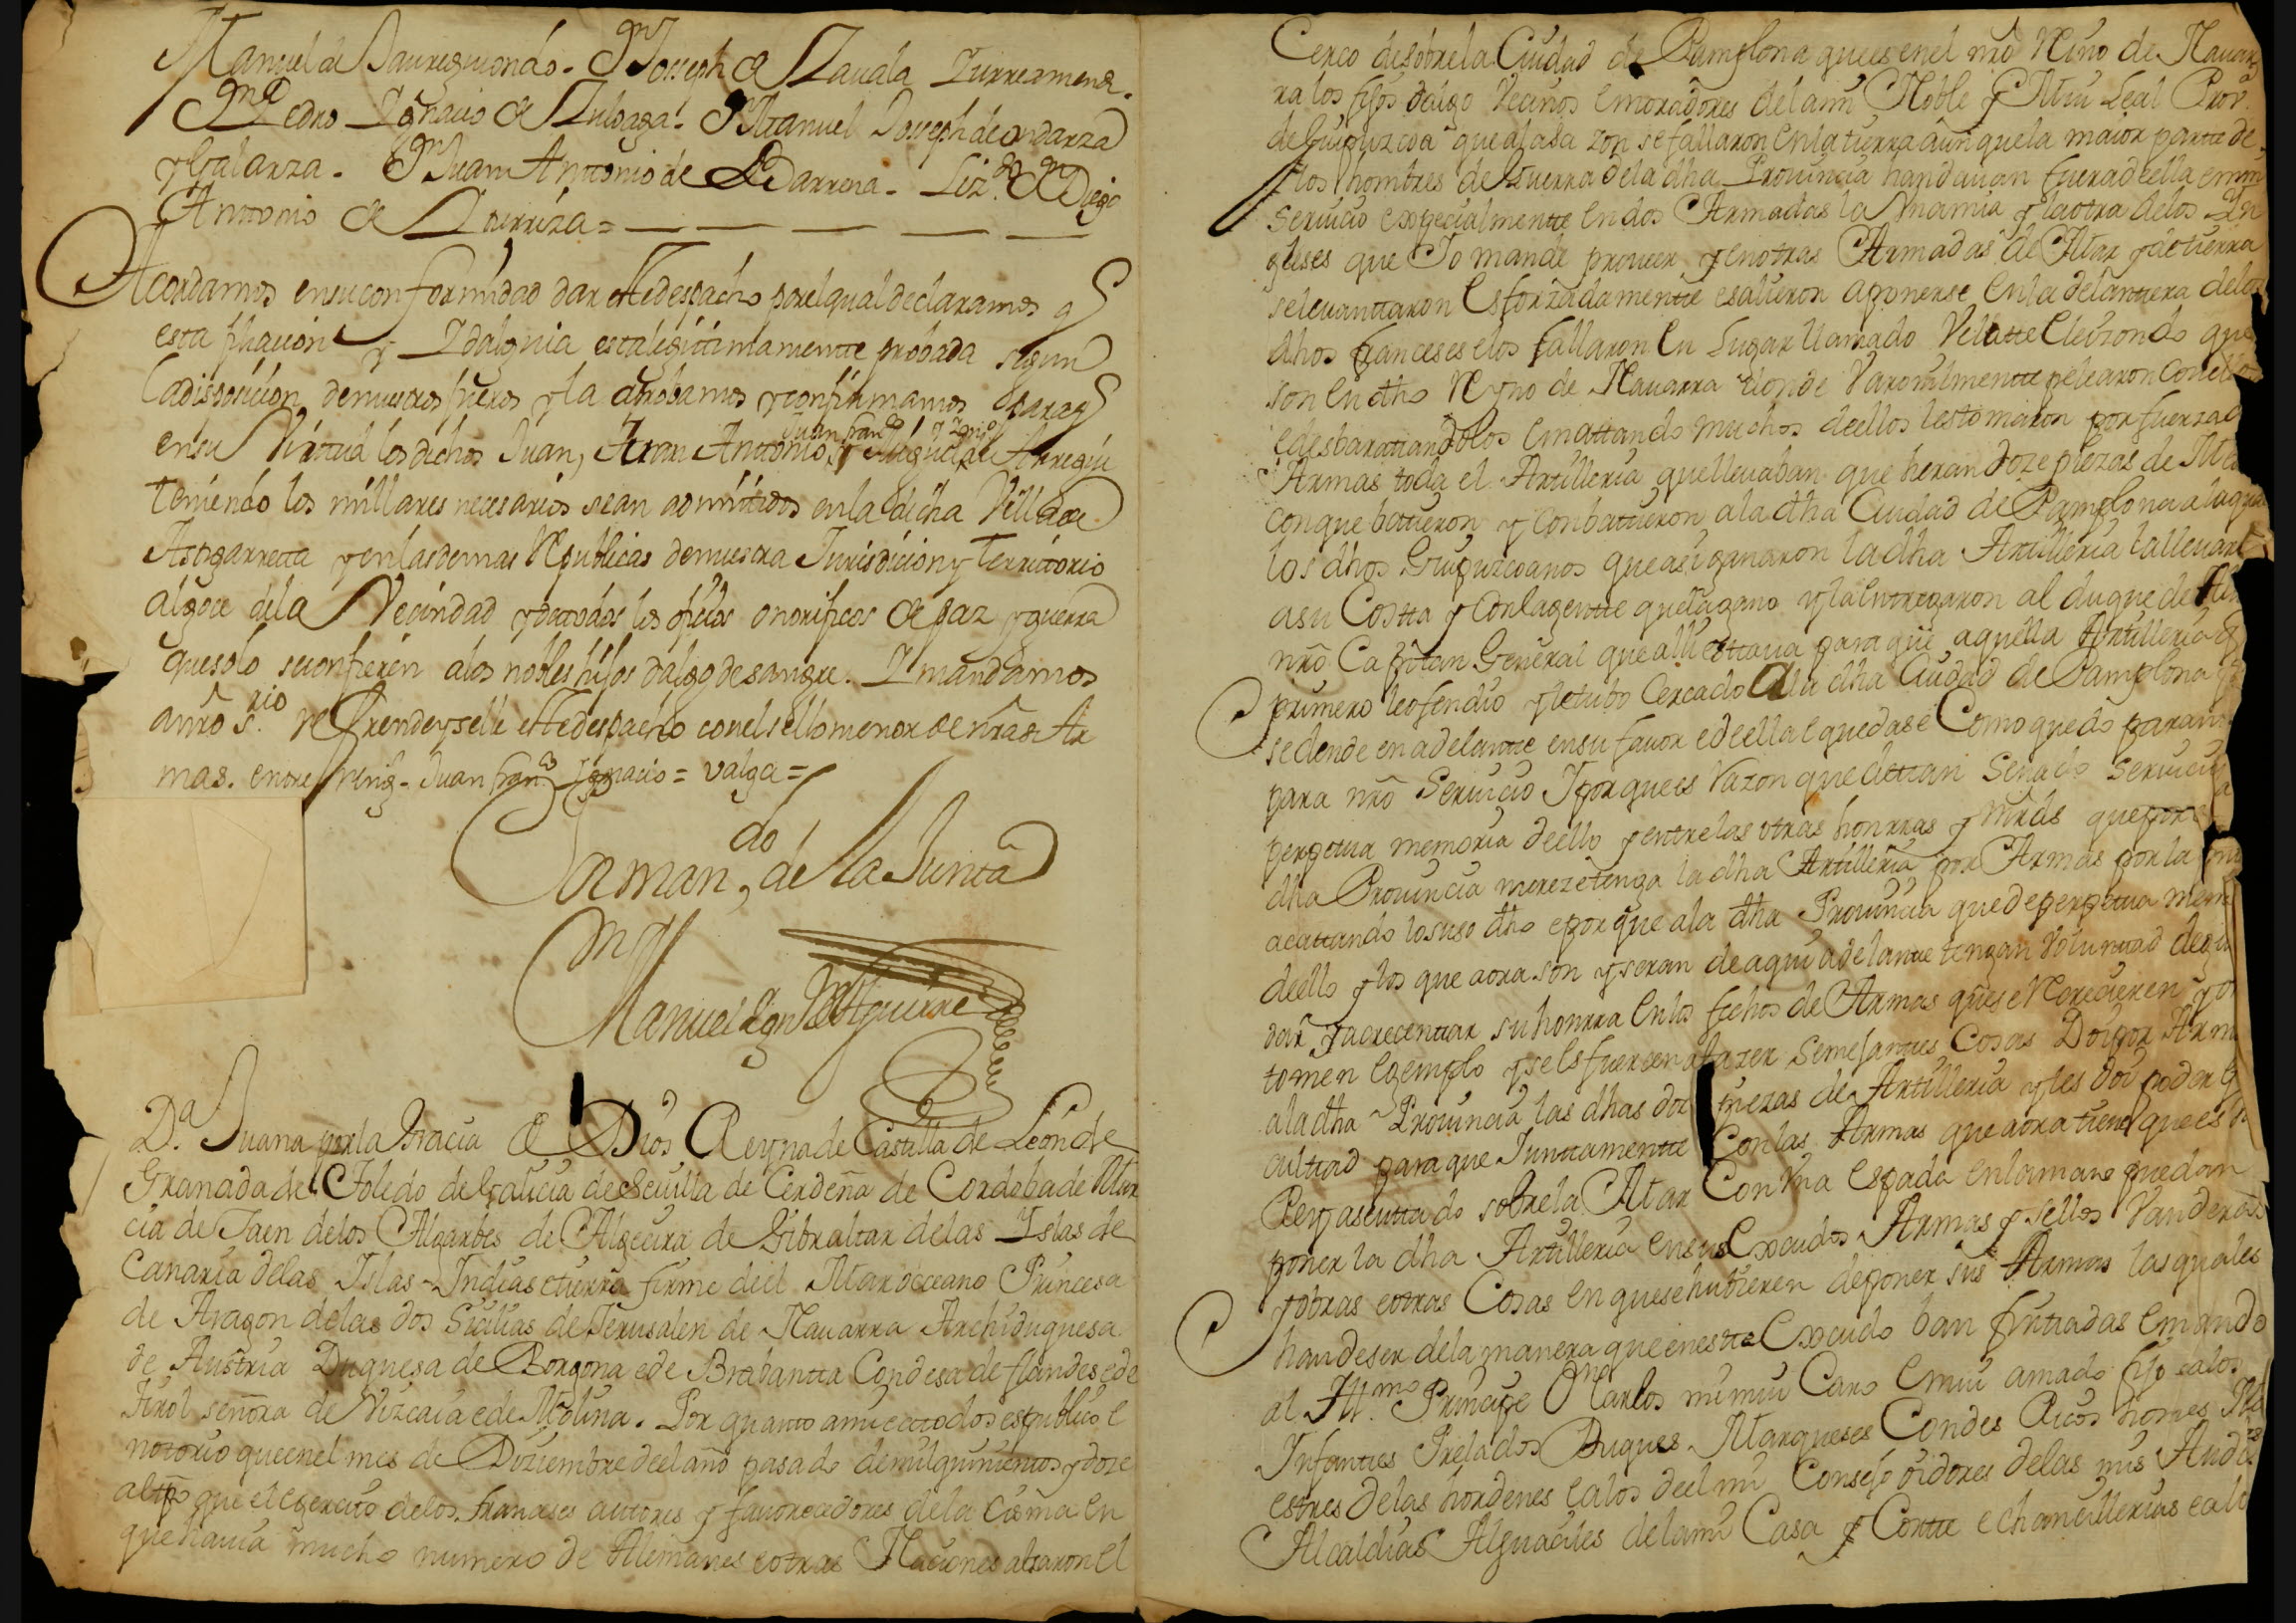 Manuel de Jaureguiondo. Dn Joseph de Zavala Iurreamend.
Dn Pedro Ignacio de Zuloaga. Dn Manuel Joseph de ondarza
y Galarza. Dn Juan Antonio de Ldarrena. Lizdo Dn Diego
Antonio de =
Acordamos en su conformidad dar este despacho por el qual declaramos q
esta filiacion y Idalguia esta legitimamente probada segun
la disposicion de nuestros fueros y la aprobamos y confirmamos para q
en su Virtud los dichos Juan, Juan Antonio, Juan franco y Igno y Miguel de Arregui
teniendo los millares necesarios sean admitidos en la dicha Villa de
Astigarreta y en las demas Republicas de nuestra Jurisdicion y Territorio
al goce de la Vecindad y de todos los oficios onorificos de paz y guerra
que solo se confieren a los nobles hijos dalgo de sangre. I mandamos
a nro s.rio refrende y selle este despacho con el sello menor de nras Ar
mas. entre rengs. Juan franco Ignacio = valga =
Por mando de la Junta
Dn Manuel Ign de Aguirre
D.a Juana por la Gracia de Dios Reyna de Castilla de Leon de
Granada de Toledo de Galicia de Sevilla de Cerdeña de Cordoba de Mur
cia de Jaen de los Algarbes de Algecira de Gibraltar de las Islas de
Canaria de las Islas Indias e tierra firme del Mar occeano Princesa
de Aragon de las dos Sicilias de Jerusalen de Navarra Archiduquesa
de Austria Duquesa de Borgoña e de Brabantta Condesa de flandes e de
tirol señora de Vizcaia e de Molina. Por quanto a mi e a todos es publico e
notorio que en el mes de Diziembre de el año pasado de mil quinientos y doze
al tpo que el egercito de los franceses autores y favorecedores de la Cisma en
que havia mucho numero de Alemanes e otras Naciones alzaron el
Cerco de sobre la Ciudad de Pamplona que es en el mro Reino de Navar
ra los fijos dalgo Vecinos e moradores de la mi Noble y Mui Leal Prov.
de Guipuzcoa que a la sazon se fallaron en la tierra aunque la maior parte de
los hombres de Guerra de la dha Provincia handavan fuera de ella en mi
servicio especialmente en dos Armadas la Vna mia y la otra de los In
gleses que Yo mande proveer, y en otras Armadas de Mar y de tierra
se levantaron Esforzadamente e salieron a ponerse en la delantera de los
dhos franceses e los fallaron en Lugar llamado Velatte Eleizondo que
son en dho Reyno de Navarra donde Varonilmente pelearon con ellos
e desbaratandolos e mattando muchos de ellos les tomaron por fuerza de
Armas toda el Artilleria que llevaban que heran doze piezas de Me
con que batieron y conbattieron a la dha Ciudad de Pamplona a la qua
los dhos Guipuzcoanos que asi ganaron la dha Artilleria la llevar
a su Costta y Con la gentte que la gano y la entregaron al duque de
nro Capitan General que alli esttava para que aquella Artilleria q
primero le ofendio y le tubo Cercado a la dha Ciudad de Pamplona
se dende en adelante en su favor e de ella e quedase Como quedo para
para nro Servicio I por que es Razon que de ttan Señalado servicio
perpetua memoria de ello y entre las otras honrras y mrds que por
dha Provincia mereze tenga la dha Artilleria por Armas por la
acattando lo suso dho e por que a la dha Provincia quede perpetua mem
de ello y los que aora son y seran de aqui adelante tengan Voluntad de gu
dar y acrecenttar su honrra en los fechos de Armas que se Recrecieren y
tomen Egemplo y se esfuercen a fazer Semejantes Cosas Doi por Arm
a la dha Provincia las dhas doze piezas de Artilleria y les doi poder e
cultad para que Junttamente Con las Armas que aora tiene que es
Rey asenttado sobre la Mar Con Vna Espada en la mano puedan
poner la dha Artilleria en sus Escudos Armas y sellos Vanderas
y obras e otras Cosas en que se hubieren de poner sus Armas las quales
han de ser de la manera que en este Escudo ban pintadas E mando
al Ill.mo Principe Dn Carlos mi mui Caro E mui amado fijo e a los
Infantes Prelados Duques Marqueses Condes Ricos homes Ma
estres de las hordenes e a los de el mi Consejo oidores de las mis Audias
Alcaldias Alguaciles de la mi Casa y Cortte e chancillerias e a lo